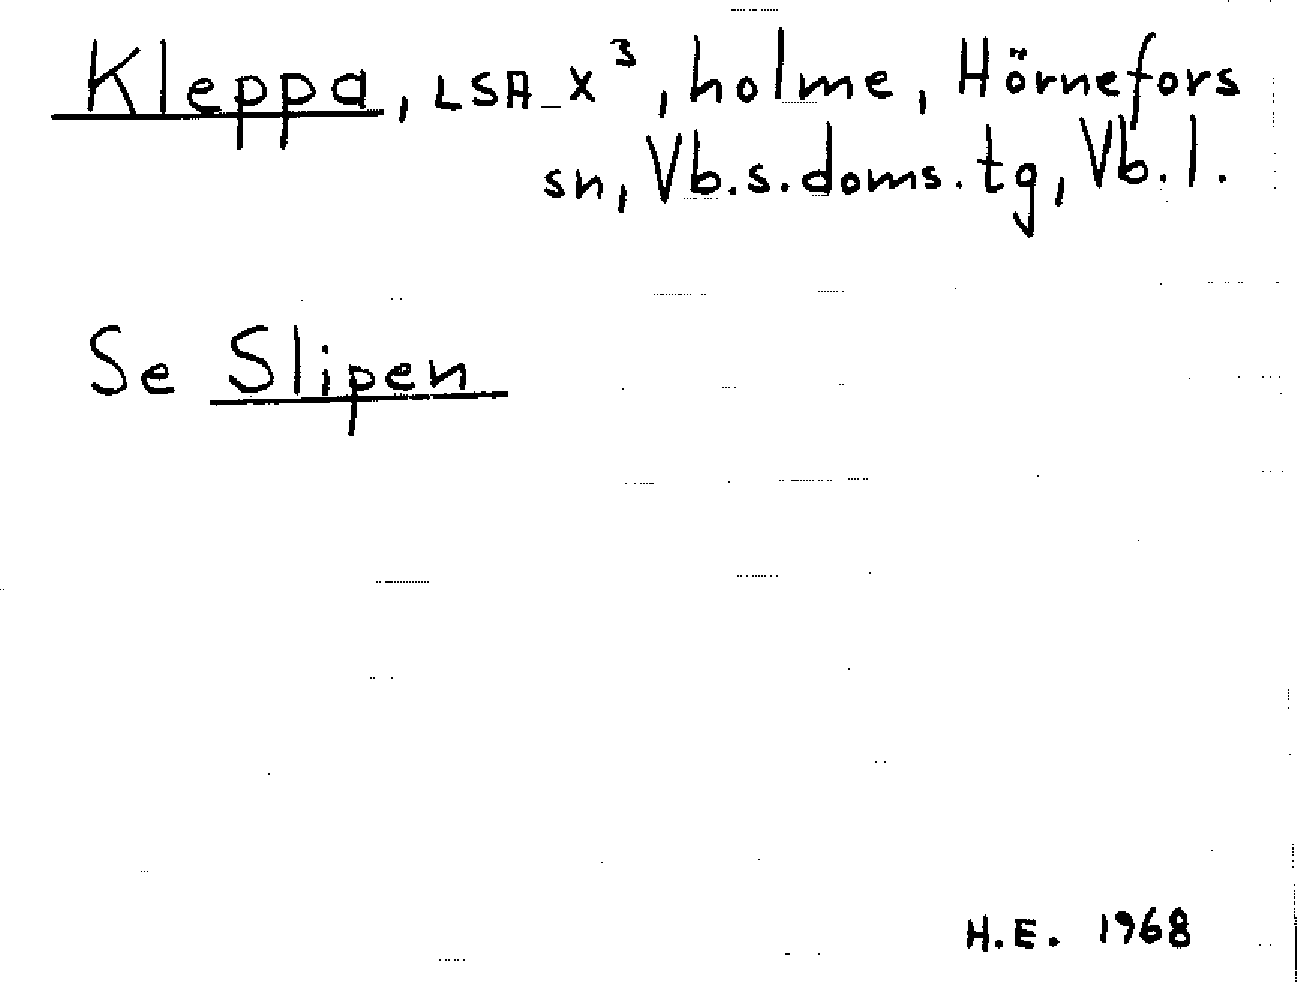 Kleppa, LSA_X³, holme, Hörnefors
sn, Vb.s.doms.tg, Vb.l.
Se Slipen
H.E. 1968